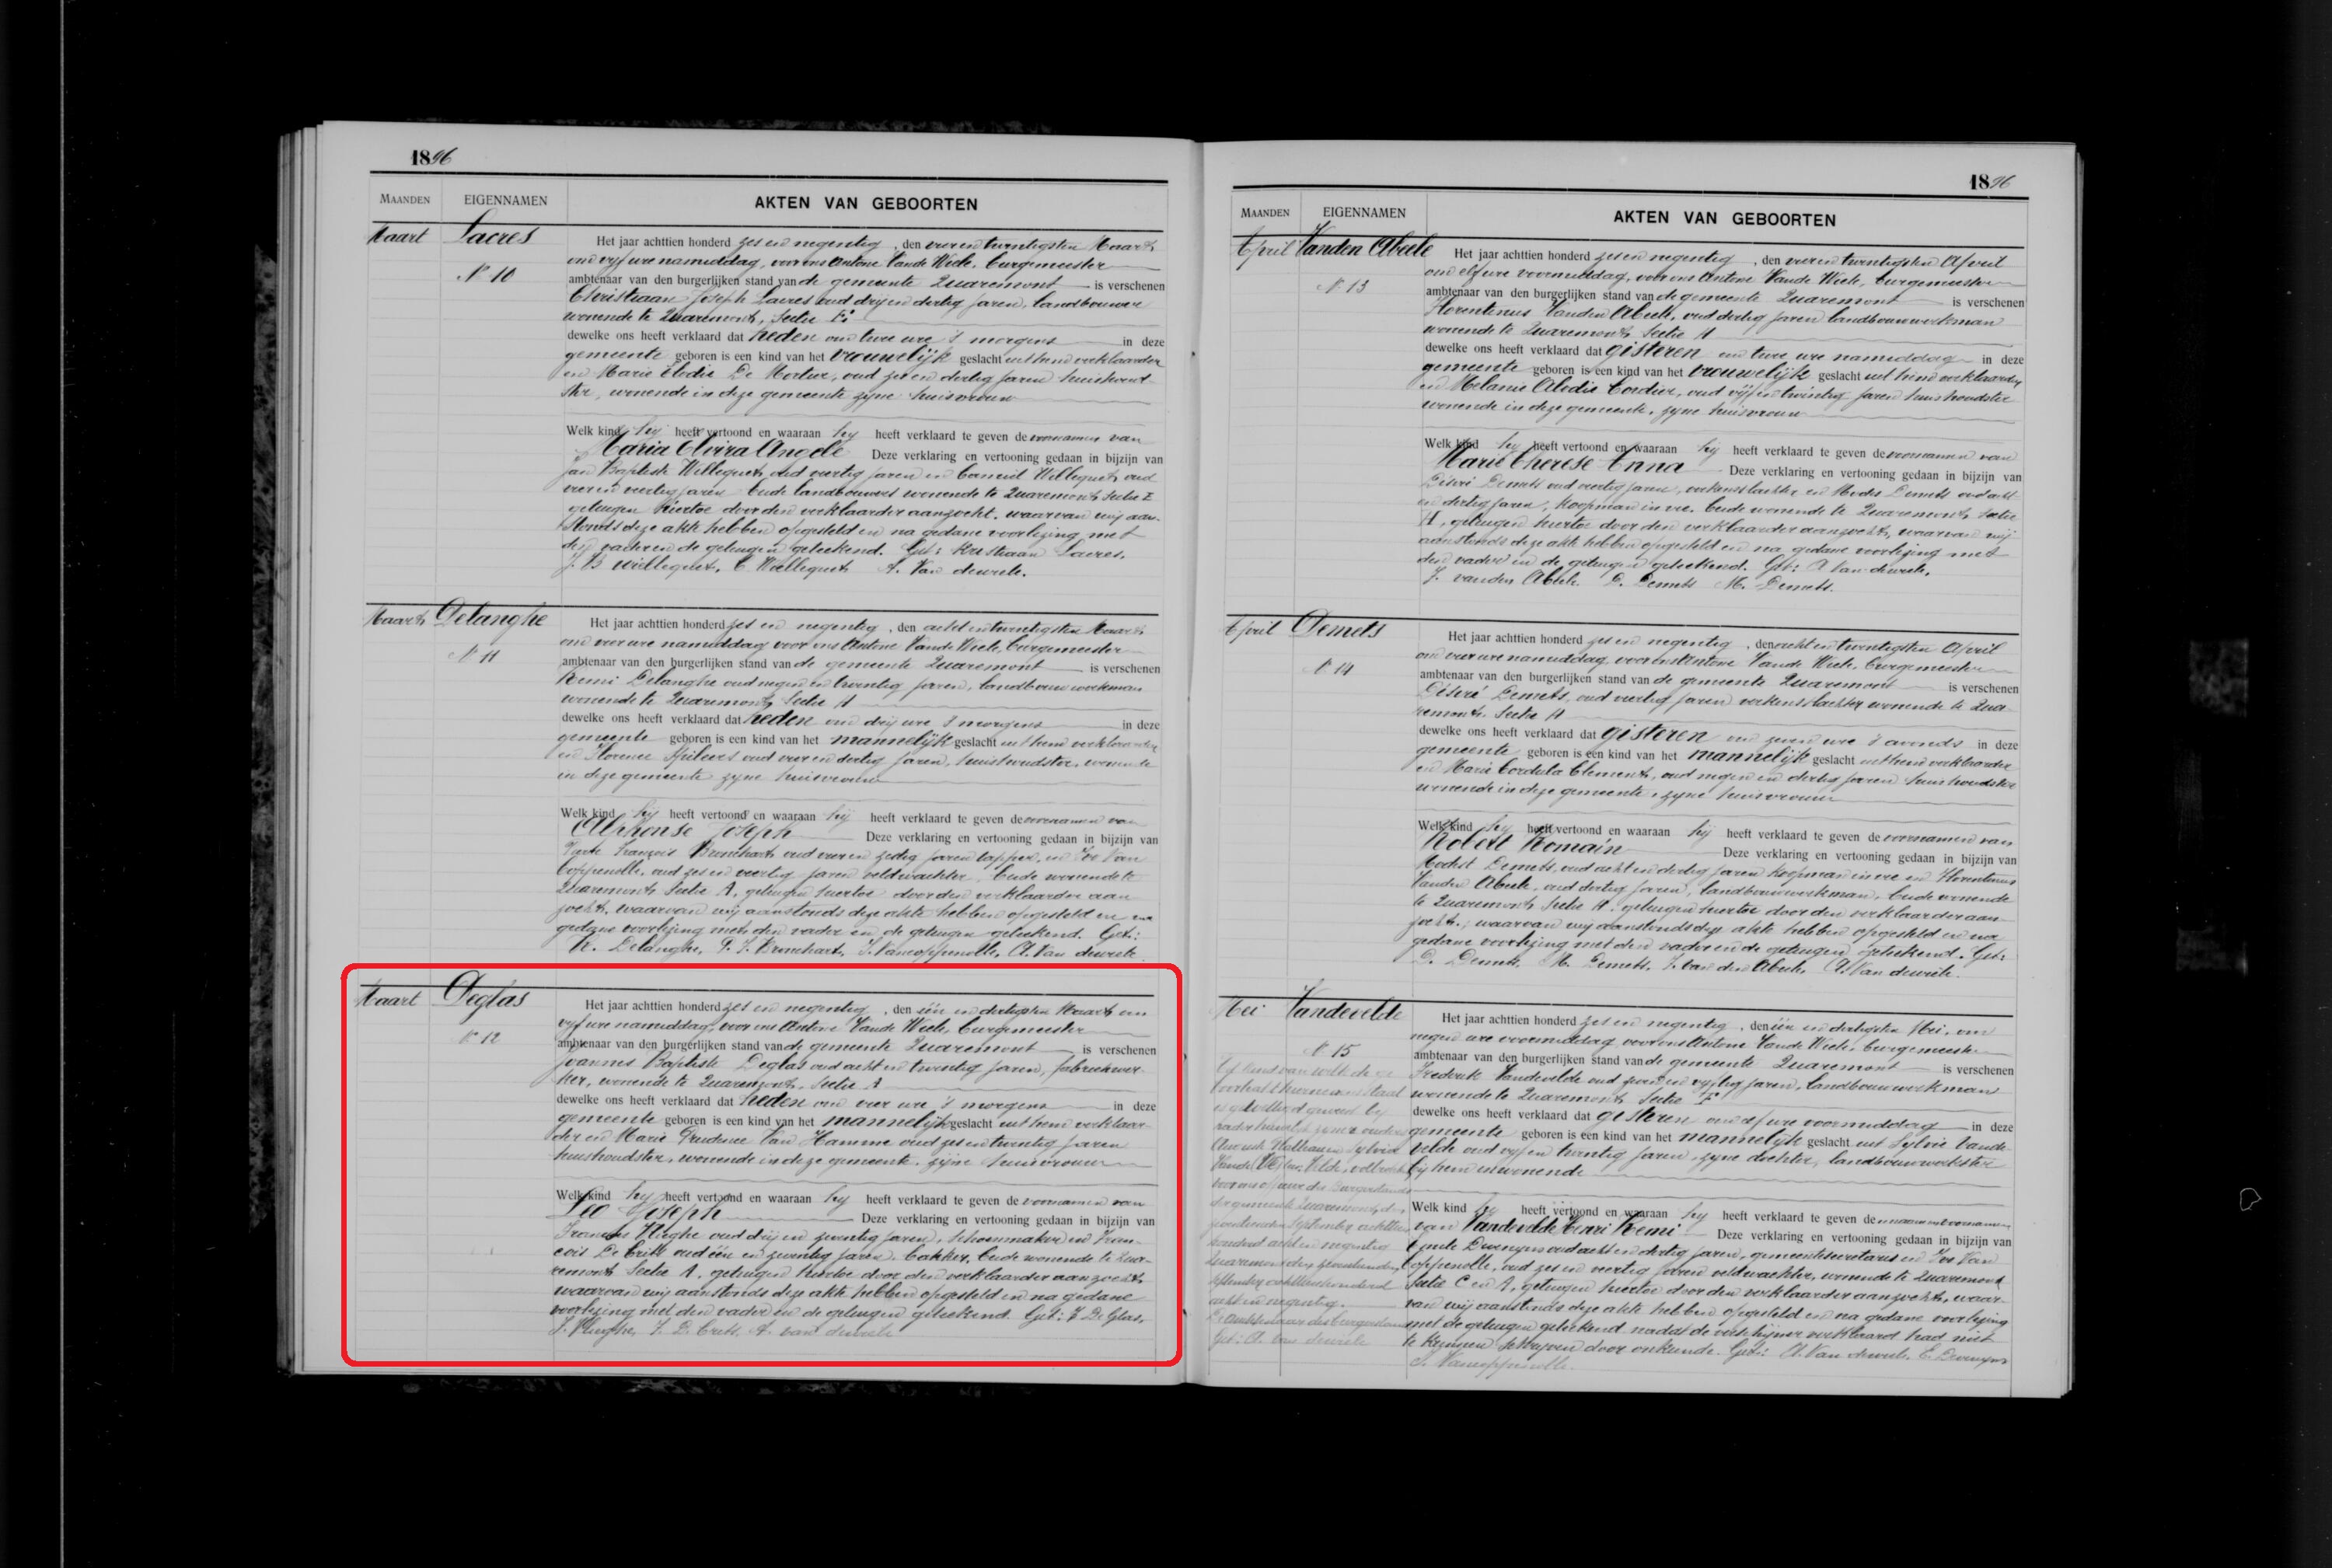 1896
MAANDEN EIGENNAMEN AKTEN VAN GEBOORTEN
Maart Lacres
N° 10
Het jaar achttien honderd zes en negentig, den vier en twintigsten Maart
om vijf ure namiddag, voor ons Antone Vande Wiele, burgemeester
ambtenaar van den burgerlijken stand van de gemeente Quaremont is verschenen
Christiaan Joseph Lacres oud drij en dertig jaren, landbouwer
wonende te Quaremont, Sectie E
dewelke ons heeft verklaard dat heden om twee ure 's morgens in deze
gemeente geboren is een kind van het vrouwelijk geslacht uit hem verklaarder
en Marie Elodie De Mortier, oud zes en dertig jaren huishoud-
ster, wonende in deze gemeente zijne huisvrouw
Welk kind hij heeft vertoond en waaraan hij heeft verklaard te geven de voornamen van
Maria Elvira Angele Deze verklaring en vertooning gedaan in bijzijn van
Jan Baptiste Willequet, oud veertig jaren en Camiel Willequet, oud
vier en veertig jaren beide landbouwers wonende te Quaremont Sectie E
getuigen hiertoe door den verklaarder aanzocht, waarvan wij aan-
stonds deze akte hebben opgesteld en na gedane voorlezing met
den vader en de getuigen geteekend. Get: Kristiaan Lacres,
J. B Willequet, C Willequet A. Van dewiele.
Maart Delanghe
N° 11
Het jaar achttien honderd zes en negentig, den acht en twintigsten Maart
om vier ure namiddag voor ons Antone Vande Wiele, burgemeester
ambtenaar van den burgerlijken stand van de gemeente Quaremont is verschenen
Remi Delanghe oud negen en twintig jaren, landbouwwerkman
wonende te Quaremont, Sectie A
dewelke ons heeft verklaard dat heden om drij ure 's morgens in deze
gemeente geboren is een kind van het mannelijk geslacht uit hem verklaarder
en Florence Spileers oud vier en dertig jaren, huishoudster, wonende
in deze gemeente zijne huisvrouw
Welk kind hij heeft vertoond en waaraan hij heeft verklaard te geven de voornamen van
Alphonse Joseph Deze verklaring en vertooning gedaan in bijzijn van
François Bronchart oud vier en zestig jaren tapper, en Ivo Van
Coppenolle, oud zes en veertig jaren veldwachter, beide wonende te
Quaremont Sectie A, getuigen hiertoe door den verklaarder aan
zocht, waarvan wij aanstonds deze akte hebben opgesteld en na
gedane voorlezing met den vader en de getuigen geteekend. Get:
R. Delanghe, F. J. Bronchart, I. Vancoppenolle, A. Van dewiele
Maart Deglas
N° 12
Het jaar achttien honderd zes en negentig, den één en dertigsten Maart om
vijf ure namiddag, voor ons Antone Vande Wiele, burgemeester
ambtenaar van den burgerlijken stand van de gemeente Quaremont is verschenen
Joannes Baptiste Deglas oud acht en twintig jaren, fabriekwer-
ker, wonende te Quaremont, Sectie A
dewelke ons heeft verklaard dat heden om vier ure 's morgens in deze
gemeente geboren is een kind van het mannelijk geslacht uit hem verklaar-
der en Marie Prudence Van Hamme oud zes en twintig jaren
huishoudster, wonende in deze gemeente, zijne huisvrouw
Welk kind hij heeft vertoond en waaraan hij heeft verklaard te geven de voornamen van
Leo Joseph Deze verklaring en vertooning gedaan in bijzijn van
Hughe oud drij en zeventig jaren, schoenmaker en Fran-
cois De oud één en zeventig jaren, bakker, beide wonende te Qua-
remont Sectie A, getuigen hiertoe door den verklaarder aanzocht
waarvan wij aanstonds deze akte hebben opgesteld en na gedane
voorlezing met den vader en de getuigen geteekend. Get: J DeGlas,
A. Van dewiele
1896
MAANDEN EIGENNAMEN AKTEN VAN GEBOORTEN
April Vanden Abeele
N° 13
Het jaar achttien honderd zes en negentig, den vier en twintigsten April
om elf ure voormiddag, voor ons Antone Vande Wiele, burgemeester
ambtenaar van den burgerlijken stand van de gemeente Quaremont is verschenen
Florentinus Vanden Abeele, oud dertig jaren landbouwwerkman
wonende te Quaremont, Sectie A
dewelke ons heeft verklaard dat gisteren om twee ure namiddag in deze
gemeente geboren is een kind van het vrouwelijk geslacht uit hem verklaarder
en Melanie Cordier, oud vijf en twintig jaren huishoudster
wonende in deze gemeente, zijne huisvrouw
Welk kind hij heeft vertoond en waaraan hij heeft verklaard te geven de voornamen van
Marie Therese Anna Deze verklaring en vertooning gedaan in bijzijn van
Désiré Demets oud veertig jaren, verkensslachter en Modest Demets oud acht
en dertig jaren, koopman in vee, beide wonende te Quaremont, Sectie
A, getuigen hiertoe door den verklaarder aanzocht, waarvan wij
aanstonds deze akte hebben opgesteld en na gedane voorlezing met
den vader en de getuigen geteekend. Get: A Van dewiele,
F. vanden Abeele D. Demets M. Demets.
April Demets
N° 14
Het jaar achttien honderd zes en negentig, den acht en twintigsten April
om vier ure namiddag voor ons Antone Vande Wiele, burgemeester
ambtenaar van den burgerlijken stand van de gemeente Quaremont is verschenen
Désiré Demets, oud veertig jaren verkensslachter wonende te Qua-
remont, Sectie A
dewelke ons heeft verklaard dat gisteren om zeven ure 's avonds in deze
gemeente geboren is een kind van het mannelijk geslacht uit hem verklaarder
en Marie Cordula Clement, oud negen en dertig jaren huishoudster
wonende in deze gemeente, zijne huisvrouw
Welk kind hij heeft vertoond en waaraan hij heeft verklaard te geven de voornamen van
Robert Romain Deze verklaring en vertooning gedaan in bijzijn van
Modest Demets, oud acht en dertig jaren koopman in vee en Florentinus
Vanden Abeele, oud dertig jaren, landbouwwerkman, beide wonende
te Quaremont Sectie A, getuigen hiertoe door den verklaarder aan-
zocht, waarvan wij aanstonds deze akte hebben opgesteld en na
gedane voorlezing met den vader en de getuigen geteekend. Get:
D. Demets, M. Demets, F. van den Abeele, A. Van dewiele.
Mei Vandevelde
N° 15
Het jaar achttien honderd zes en negentig, den één en dertigsten Mei, om
negen ure voormiddag voor ons Antone Vande Wiele, burgemeester
ambtenaar van den burgerlijken stand van de gemeente Quaremont is verschenen
Frederik Vandevelde oud en vijftig jaren, landbouwwerkman
wonende te Quaremont Sectie E
dewelke ons heeft verklaard dat gisteren om elf ure voormiddag in deze
gemeente geboren is een kind van het mannelijk geslacht uit Sylvie Vande-
velde oud vijf en twintig jaren, zijne dochter, landbouwwerkster
bij hem inwonende
Welk kind hij heeft vertoond en waaraan hij heeft verklaard te geven de naam en voornamen
van Vandevelde Henri Remi Deze verklaring en vertooning gedaan in bijzijn van
oud acht en dertig jaren, gemeentesecretaris en Ivo Van
Coppenolle, oud zes en veertig jaren veldwachter, wonende te Quaremont
Sectie C en A, getuigen hiertoe door den verklaarder aanzocht, waar-
van wij aanstonds deze akte hebben opgesteld en na gedane voorlezing
met de getuigen geteekend nadat de verklaard had niet
te kunnen schrijven door onkunde. Get: A. Van dewiele, E.
I. Vancoppenolle.